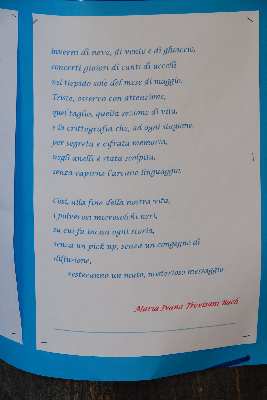 inverni di neve, di vento e di ghiaccio,
concerti gioiosi di canti di uccelli
nel tiepido sole del mese di maggio.
Triste, osservo con attenzione,
quel taglio, quella sezione di vita,
e la crittografia che, ad ogni stagione,
per segreta e cifrata memoria,
negli anelli è stata scolpita,
senza capirne l'arcano linguaggio.
Così, alla fine della nostra vita,
i polverosi microsolchi neri,
su cui fu incisa ogni storia,
senza un pick up, senza un congegno di
diffusione,
resteranno un muto, misterioso messaggio.
Maria Ivana Trevisani Bach